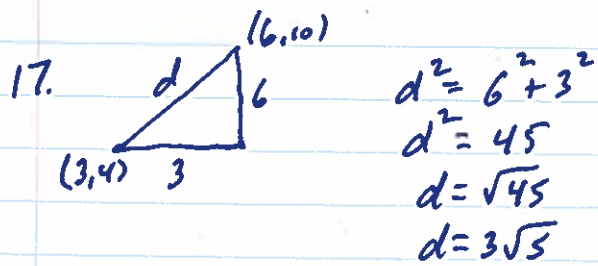 17.
(6,10)
d
6
(3,4)
3
d² = 6² + 3²
d² = 45
d = √45
d = 3√5